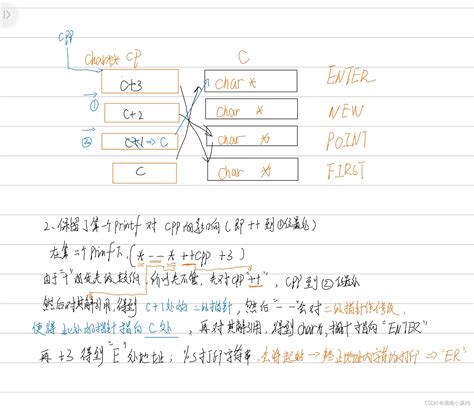 cpp
char** cp
C
c+3
char *
ENTER
①
c+2
char *
NEW
②
c+1→c
char *
POINT
c
char *
FIRST
2、保留了第一个printf对cpp的影响(即++到①位置处)
在第二个printf下,(*--*++cpp +3)
由于"+"的优先级较低,所以先不管,先对cpp"++",cpp到②位置处
然后对其解引用,得到 c+1处的二级指针,然后"--"会对二级指针作修改,
使得此处的指针指向C处,再对其解引用,得到char*,指针指向"ENTER"
再+3得到"E"处地址;%s打印字符串,
→ "ER"
CSDN